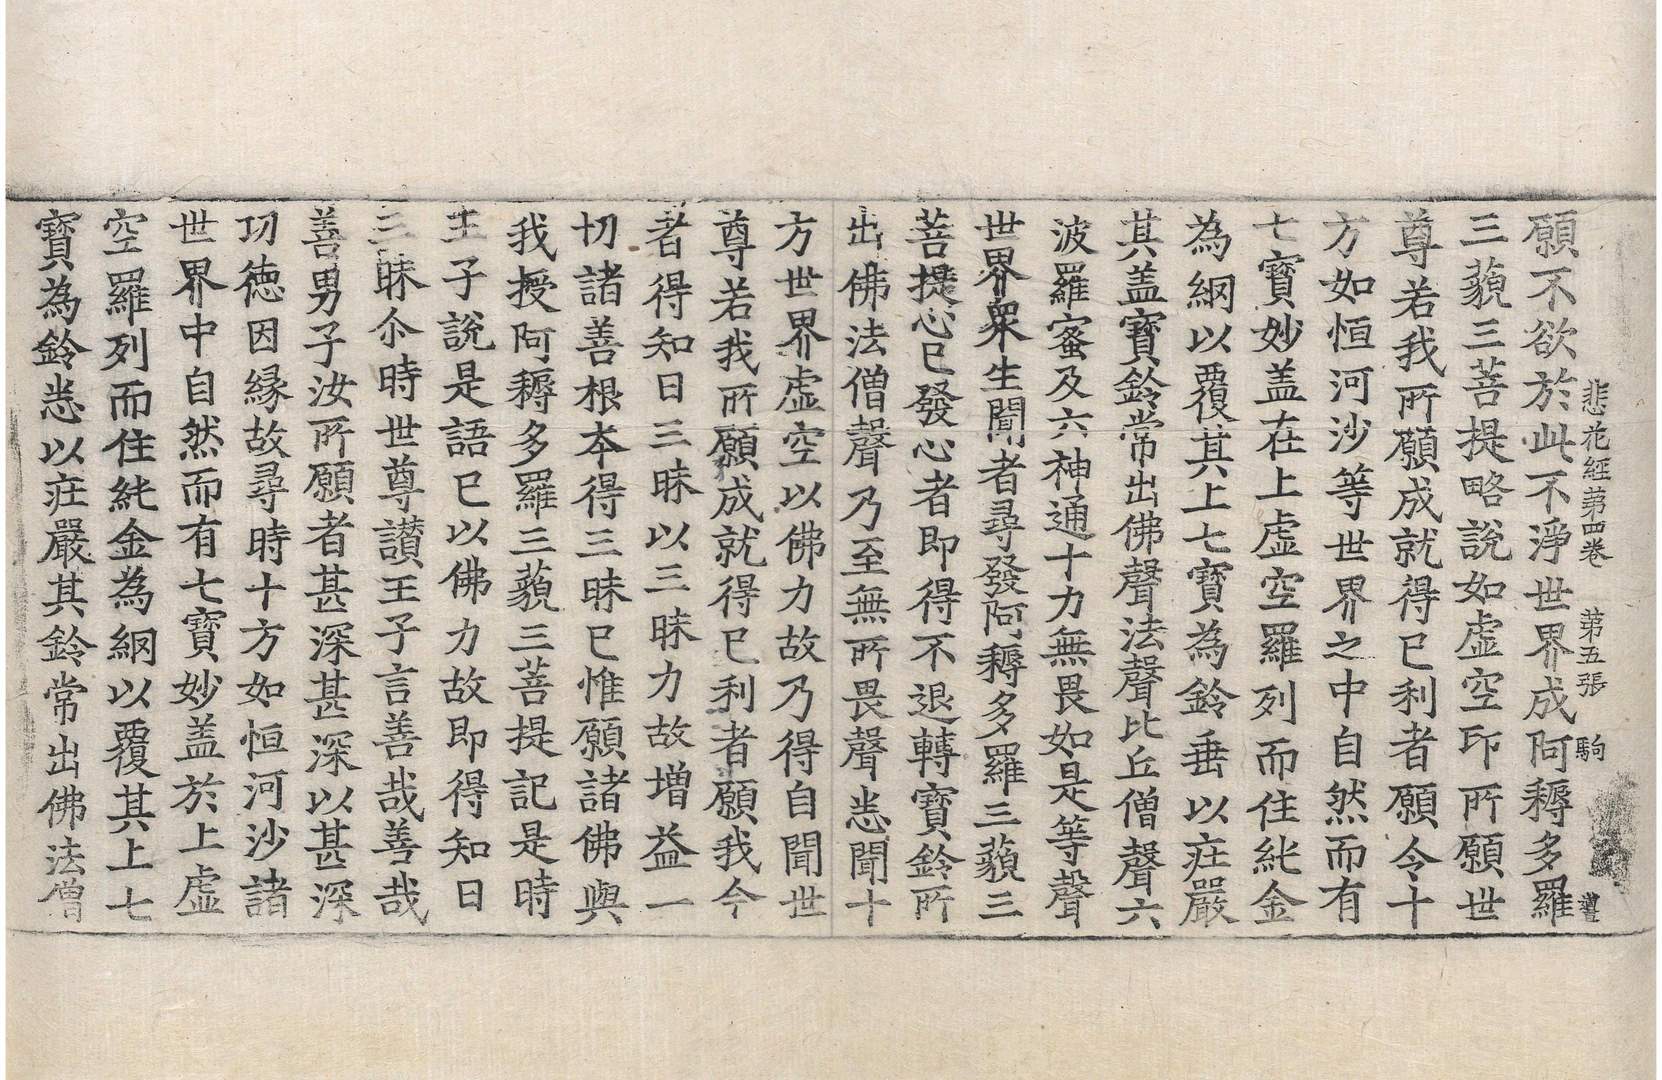 悲花經第四卷 第五張 駒
願不欲於此不淨世界成阿耨多羅
三藐三菩提略說如虛空印所願世
尊若我所願成就得已利者願令十
方如恒河沙等世界之中自然而有
七寶妙盖在上虛空羅列而住紙金
為網以覆其上七寶為鈴垂以莊嚴
其盖寶鈴常出佛聲法聲比丘僧聲六
波羅蜜及六神通十力無畏如是等聲
世界衆生聞者尋發阿耨多羅三藐三
菩提心已發心者即得不退轉寶鈴所
出佛法僧聲乃至無所畏聲悉聞十
方世界虛空以佛力故乃得自聞世
尊若我所願成就得已利者願我今
者得知日三昧以三昧力故增益一
切諸善根本得三昧已惟願諸佛與
我授阿耨多羅三藐三菩提記是時
王子說是語已以佛力故即得知日
三昧尒時世尊讃王子言善哉善哉
善男子汝所願者甚深甚深以甚深
功德因緣故尋時十方如恒河沙諸
世界中自然而有七寶妙盖於上虛
空羅列而住純金為網以覆其上七
寶為鈴悉以莊嚴其鈴常出佛法僧